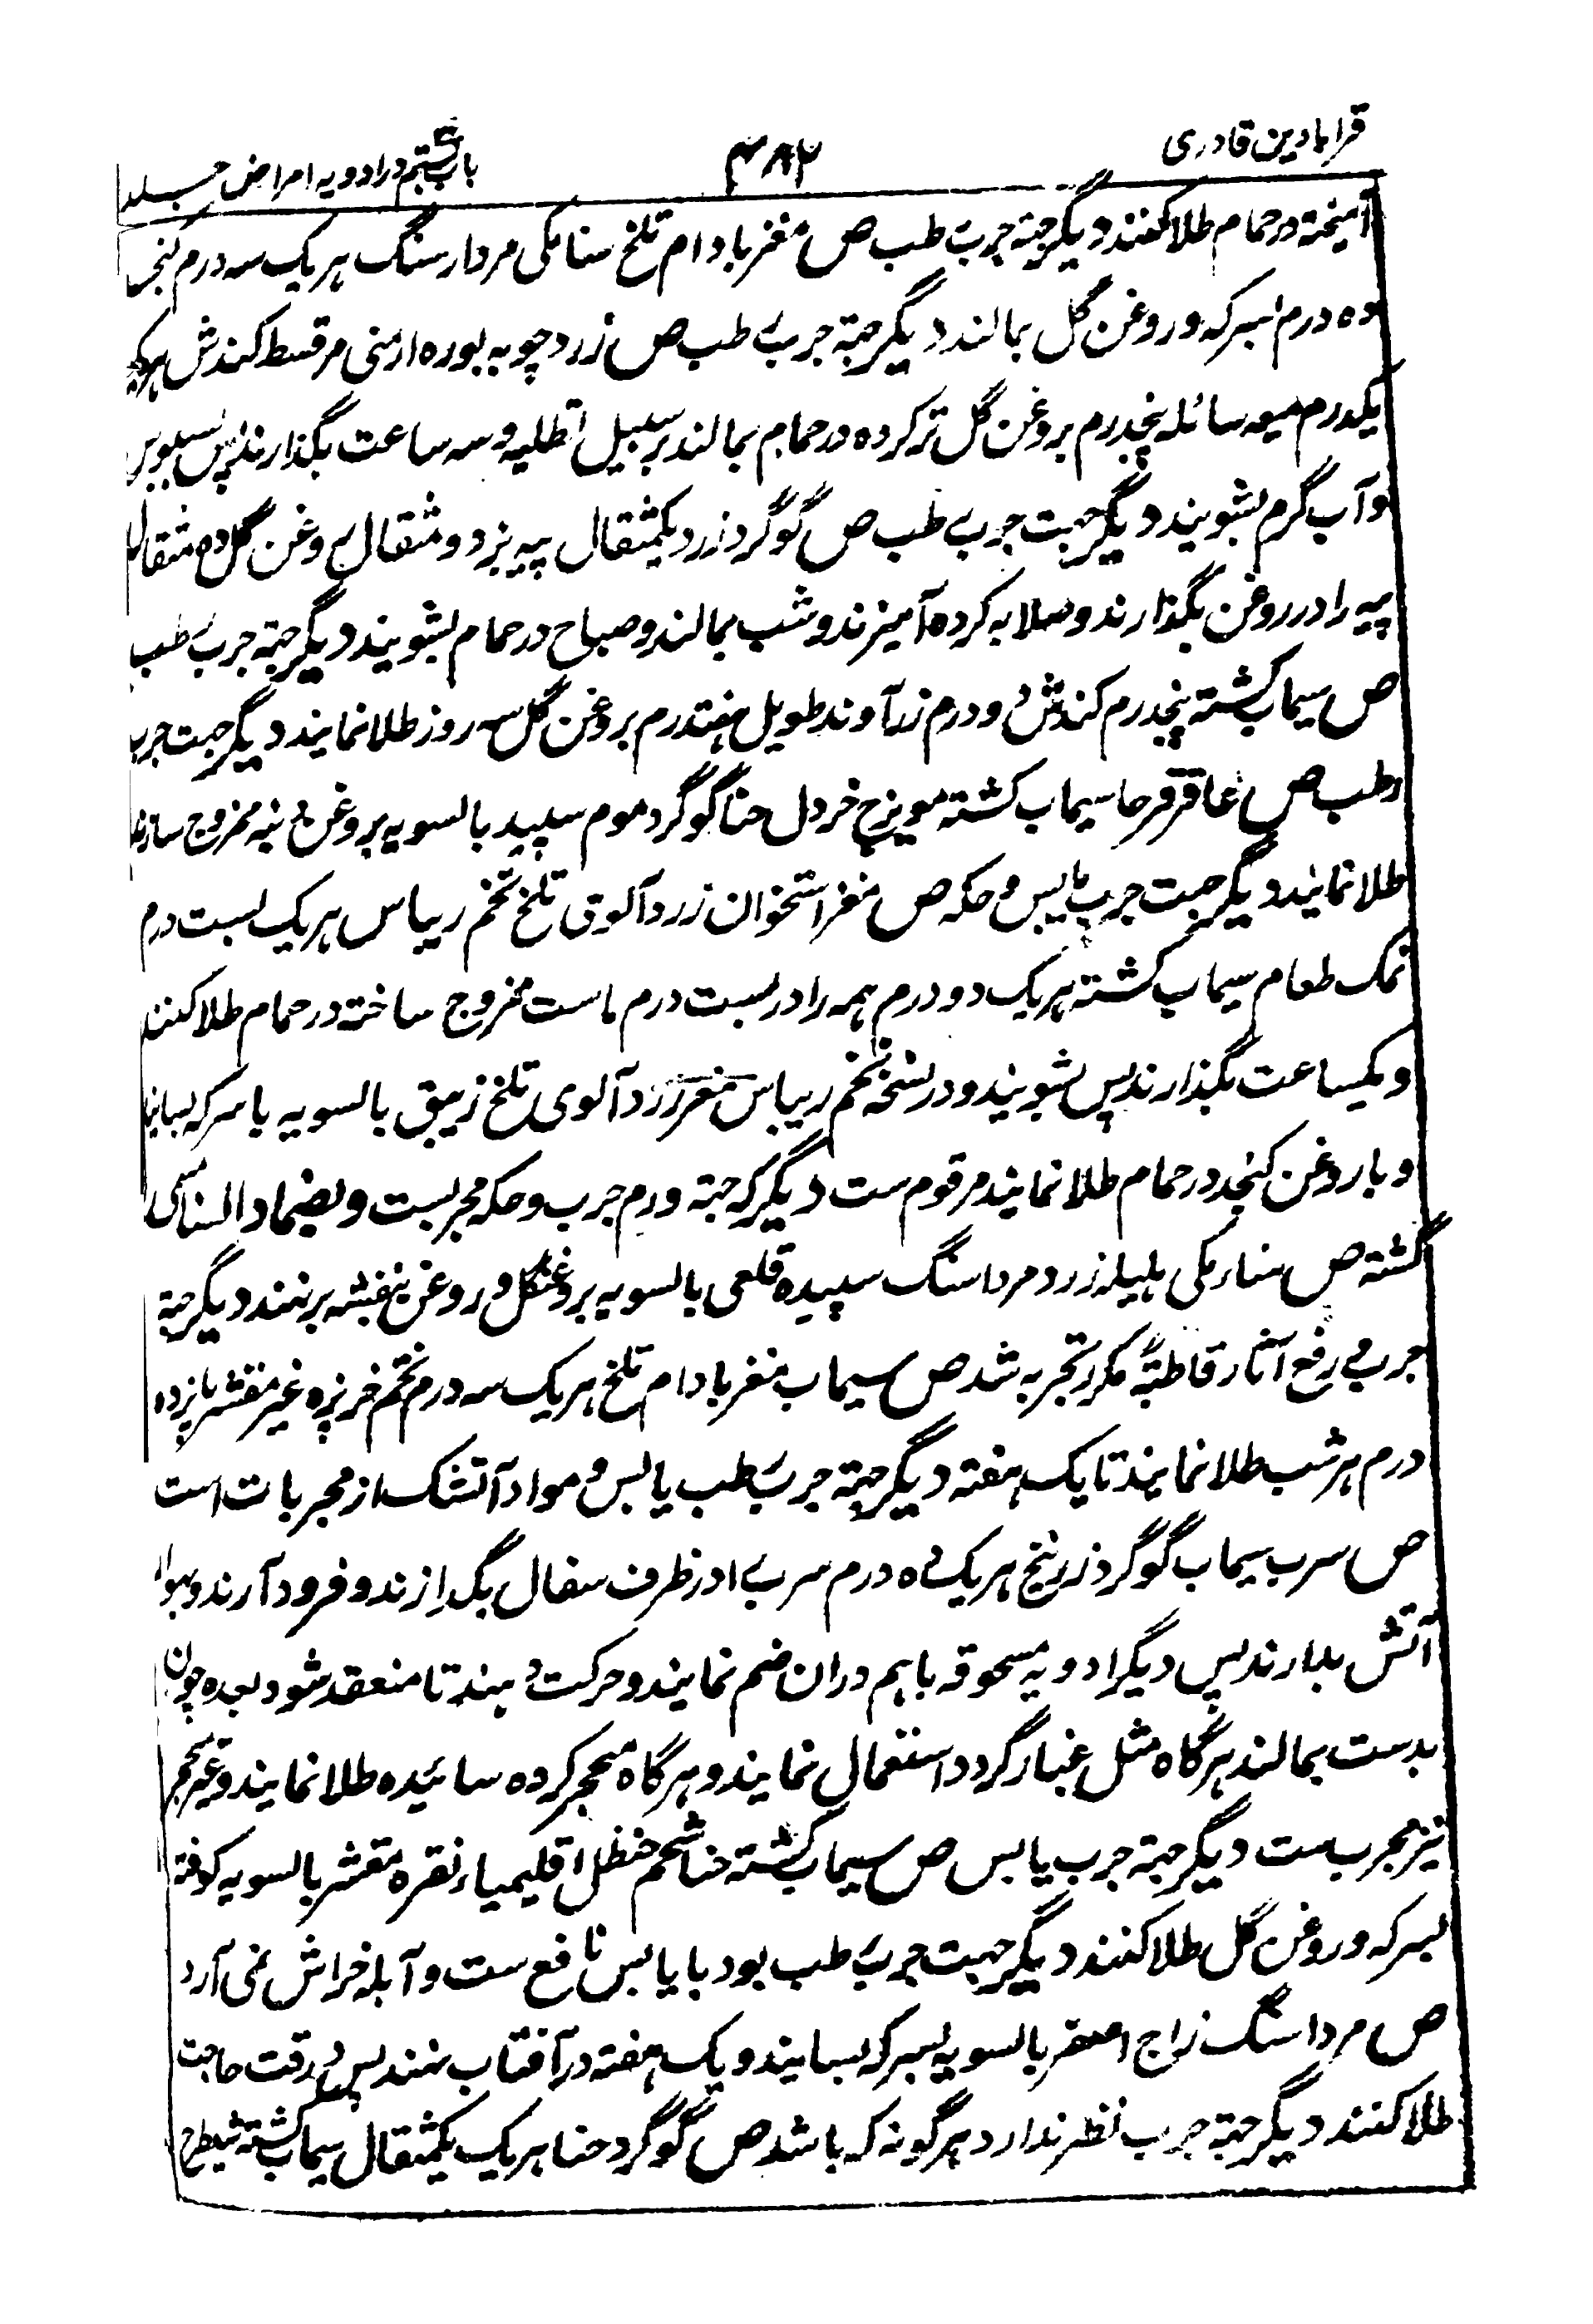 قرابادین قادری
۴۸۲
باب بستم در ادویه امراض جلد
آمیخته در حمام طلا کنند دیگر جهته جرب رطب ص مغز بادام تلخ سنا مکی مردار سنگ هر یک سه درم کنجد
ده درم بسرکه و روغن گل بمالند دیگر جهته جرب رطب ص زرد چوبه بوره ارمنی مر قسط کندش هر یک
یکدرم میعه سائله پنجدرم بروغن گل تر کرده در حمام بمالند بر سبیل اطلیه و سه ساعت بگذارند پس بسبوس
و آب گرم بشویند دیگر جهت جرب رطب ص گوگرد زرد یکمثقال پیه بز دو مثقال روغن گل ده مثقال
پیه را در روغن بگذارند و صلابه کرده آمیزند و شب بمالند و صباح در حمام بشویند دیگر جهته جرب رطب
ص سیماب کشته پنجدرم کندش دو درم زراوند طویل هفتدرم بروغن گل سه روز طلا نمایند دیگر جهت جرب
رطب ص عاقرقرحا سیماب کشته مویزج خردل حنا گوگرد موم سپید بالسویه بروغن دنبه ممزوج سازند
طلا نمایند دیگر جهت جرب یابس و حکه ص مغز استخوان زردآلوی تلخ تخم ریباس هر یک بست درم
نمک طعام سیماب کشته هر یک دو درم همه را در بست درم ماست ممزوج ساخته در حمام طلا کنند
و یکساعت بگذارند پس بشویند و در نسخه تخم ریباس مغز زردآلوی تلخ زیبق بالسویه با سرکه بسایند
و با روغن کنجد در حمام طلا نمایند مرقوم ست دیگر که جهته ورم جرب و حکه مجربست و بضماد السنا مسمی
گشته ص سنا مکی هلیله زرد مرداسنگ سپیده قلعی بالسویه بروغن گل و روغن بنفشه برنهند دیگر جهته
جرب و رفع آثار قاطبةً مکرر تجربه شد ص سیماب مغز بادام تلخ هر یک سه درم تخم خرپزه غیر مقشر پانزده
درم هر شب طلا نمایند تا یک هفته دیگر جهته جرب رطب یابس و مواد آتشک از مجربات است
ص سرب سیماب گوگرد زرنیخ هر یک ده درم سرب را در ظرف سفال بگدازند و فرود آرند و بهوا
آتش بدارند پس دیگر ادویه مسحوقه باهم دران ضم نمایند و حرکت دهند تا منعقد شود بعده چون
بدست بمالند هرگاه مثل غبار گردد استعمال نمایند و هرگاه متحجر کرده سائیده طلا نمایند و غیر متحجر
نیز مجربست دیگر جهته جرب یابس ص سیماب کشته حنا شحم حنظل اقلیمیا نقره مقشر بالسویه کوفته
بسرکه و روغن گل طلا کنند دیگر جهت جرب رطب بود یا یابس نافع ست و آبله خراش نمی آرد
ص مرداسنگ زاج اصفر بالسویه بسرکه بسایند و یک هفته در آفتاب نهند پس در وقت حاجت
طلا کنند دیگر جهته جرب نظیر ندارد هرگونه که باشد ص گوگرد حنا هر یک یکمثقال سیماب کشته شیطرج